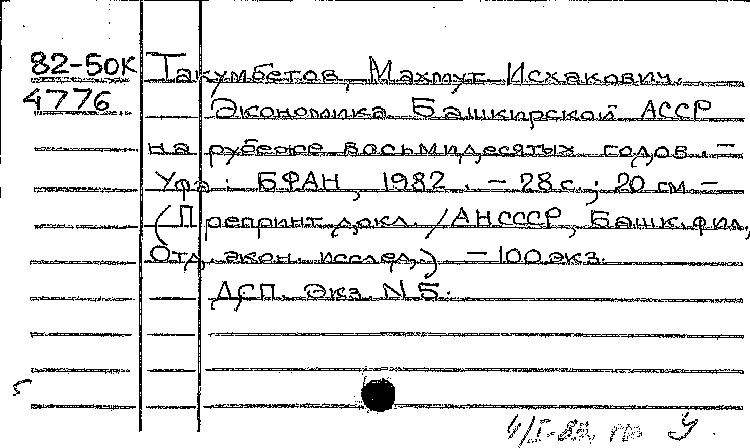 82-50К Такумбетов, Махмут Исхакович.
4776 Экономика Башкирской АССР
на рубеже восьмидесятых годов. –
Уфа: БФАН, 1982. – 28 с.; 20 см –
(Препринт докл. / АН СССР, Башк. фил,
Отд. экон. исслед.) – 100 экз.
ДСП. Экз. N 5.